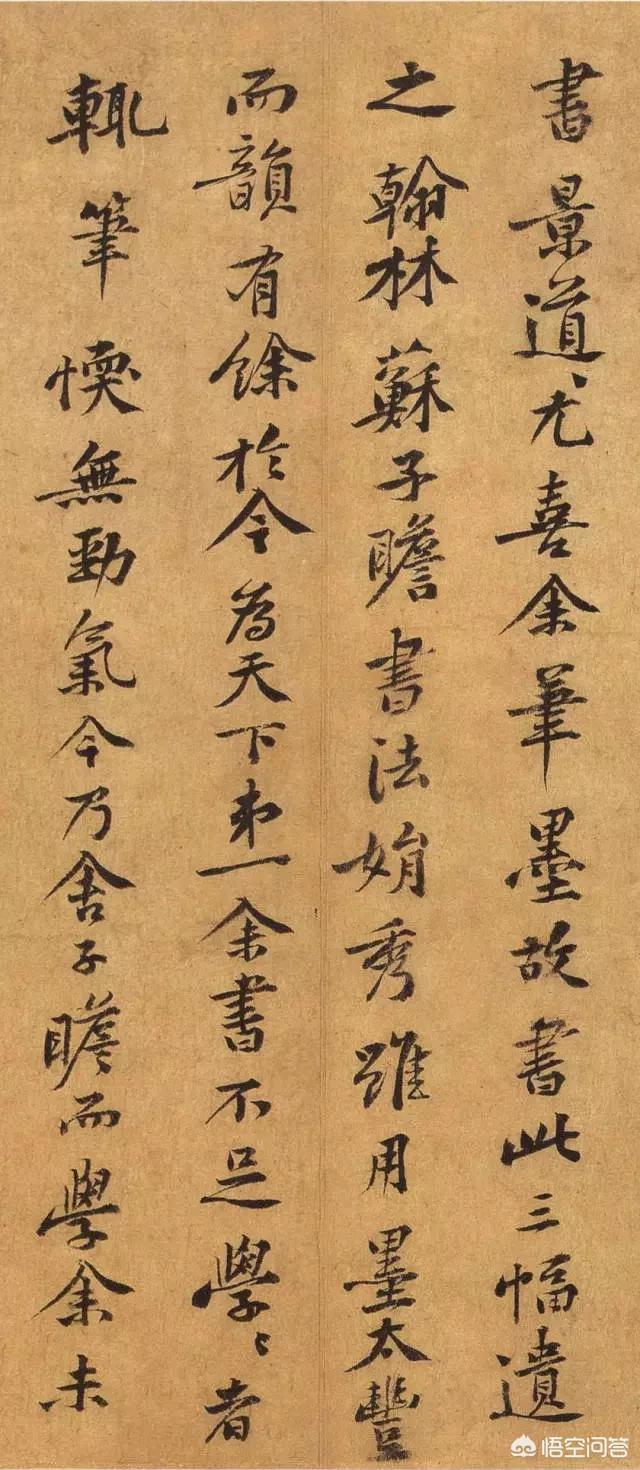 書景道〻尤喜余筆墨故書此三幅遺
之翰林蘇子瞻書法娟秀雖用墨太豐
而韻有餘於今為天下第一余書不足學〻者
輒筆愞無勁氣今乃舍子瞻而學余未
悟空问答